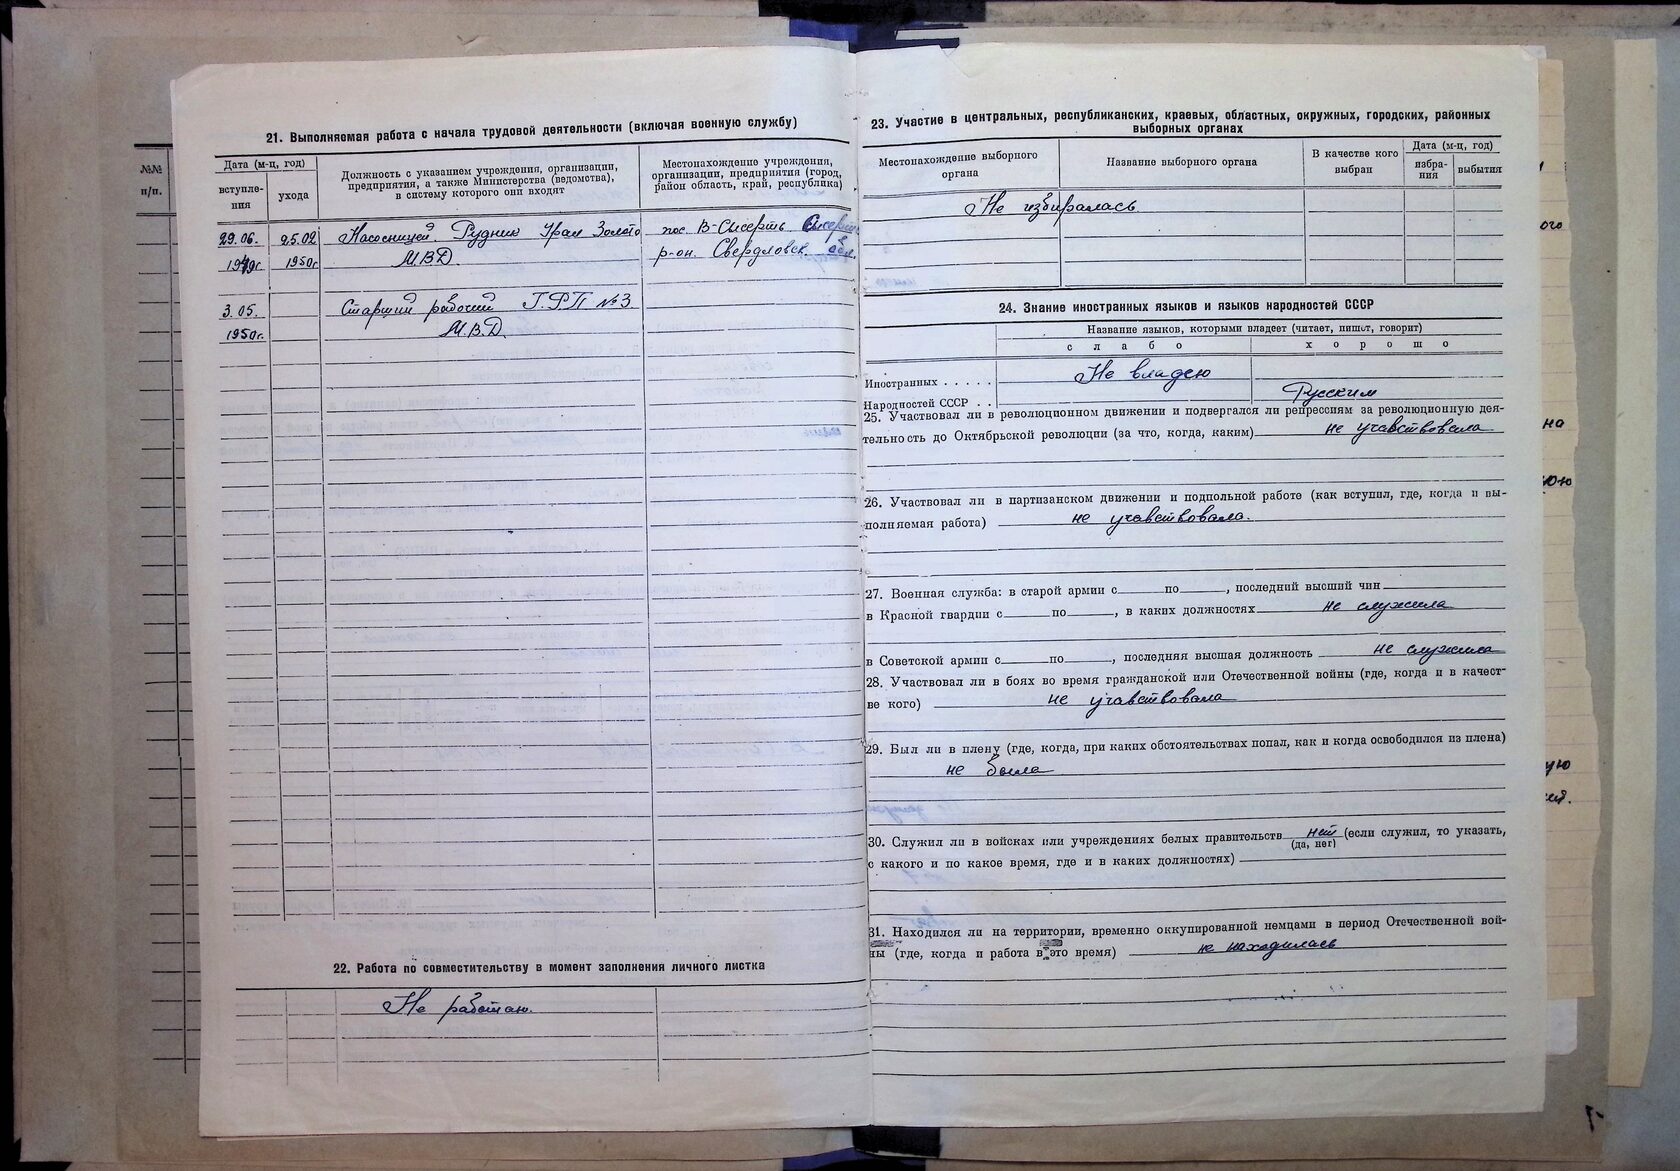 №№
п/п.
21. Выполняемая работа с начала трудовой деятельности (включая военную службу)
Дата (м-ц, год)
вступле-
ния
ухода
Должность с указанием учреждения, организации,
предприятия, а также Министерства (ведомства),
в систему которого они входят
Местонахождение учреждения,
организации, предприятия (город,
район область, край, республика)
29.06. 25.02 Насосницей. Рудник Урал Золото пос. В-Сысерть Сысертс.
1949г 1950г М.В.Д. р-он. Свердловск. обл.
3.05. Старший рабочий Г.Р.П №3
1950г. М.В.Д.
22. Работа по совместительству в момент заполнения личного листка
Не работаю.
23. Участие в центральных, республиканских, краевых, областных, окружных, городских, районных
выборных органах
Местонахождение выборного
органа
Название выборного органа
В качестве кого
выбран
Дата (м-ц, год)
избра-
ния
выбытия
Не избиралась
24. Знание иностранных языков и языков народностей СССР
Название языков, которыми владеет (читает, пишет, говорит)
слабо хорошо
Иностранных . . . . . Не владею
Народностей СССР . . Русским
25. Участвовал ли в революционном движении и подвергался ли репрессиям за революционную дея-
тельность до Октябрьской революции (за что, когда, каким) не учавствовала
26. Участвовал ли в партизанском движении и подпольной работе (как вступил, где, когда и вы-
полняемая работа) не учавствовала.
27. Военная служба: в старой армии с по , последний высший чин
в Красной гвардии с по , в каких должностях не служила
в Советской армии с по , последняя высшая должность не служила
28. Участвовал ли в боях во время гражданской или Отечественной войны (где, когда и в качест-
ве кого) не учавствовала
29. Был ли в плену (где, когда, при каких обстоятельствах попал, как и когда освободился из плена)
не была
30. Служил ли в войсках или учреждениях белых правительств нет (если служил, то указать,
(да, нет)
с какого и по какое время, где и в каких должностях)
31. Находился ли на территории, временно оккупированной немцами в период Отечественной вой-
ны (где, когда и работа в это время) не находилась
ого
на
ою
ую